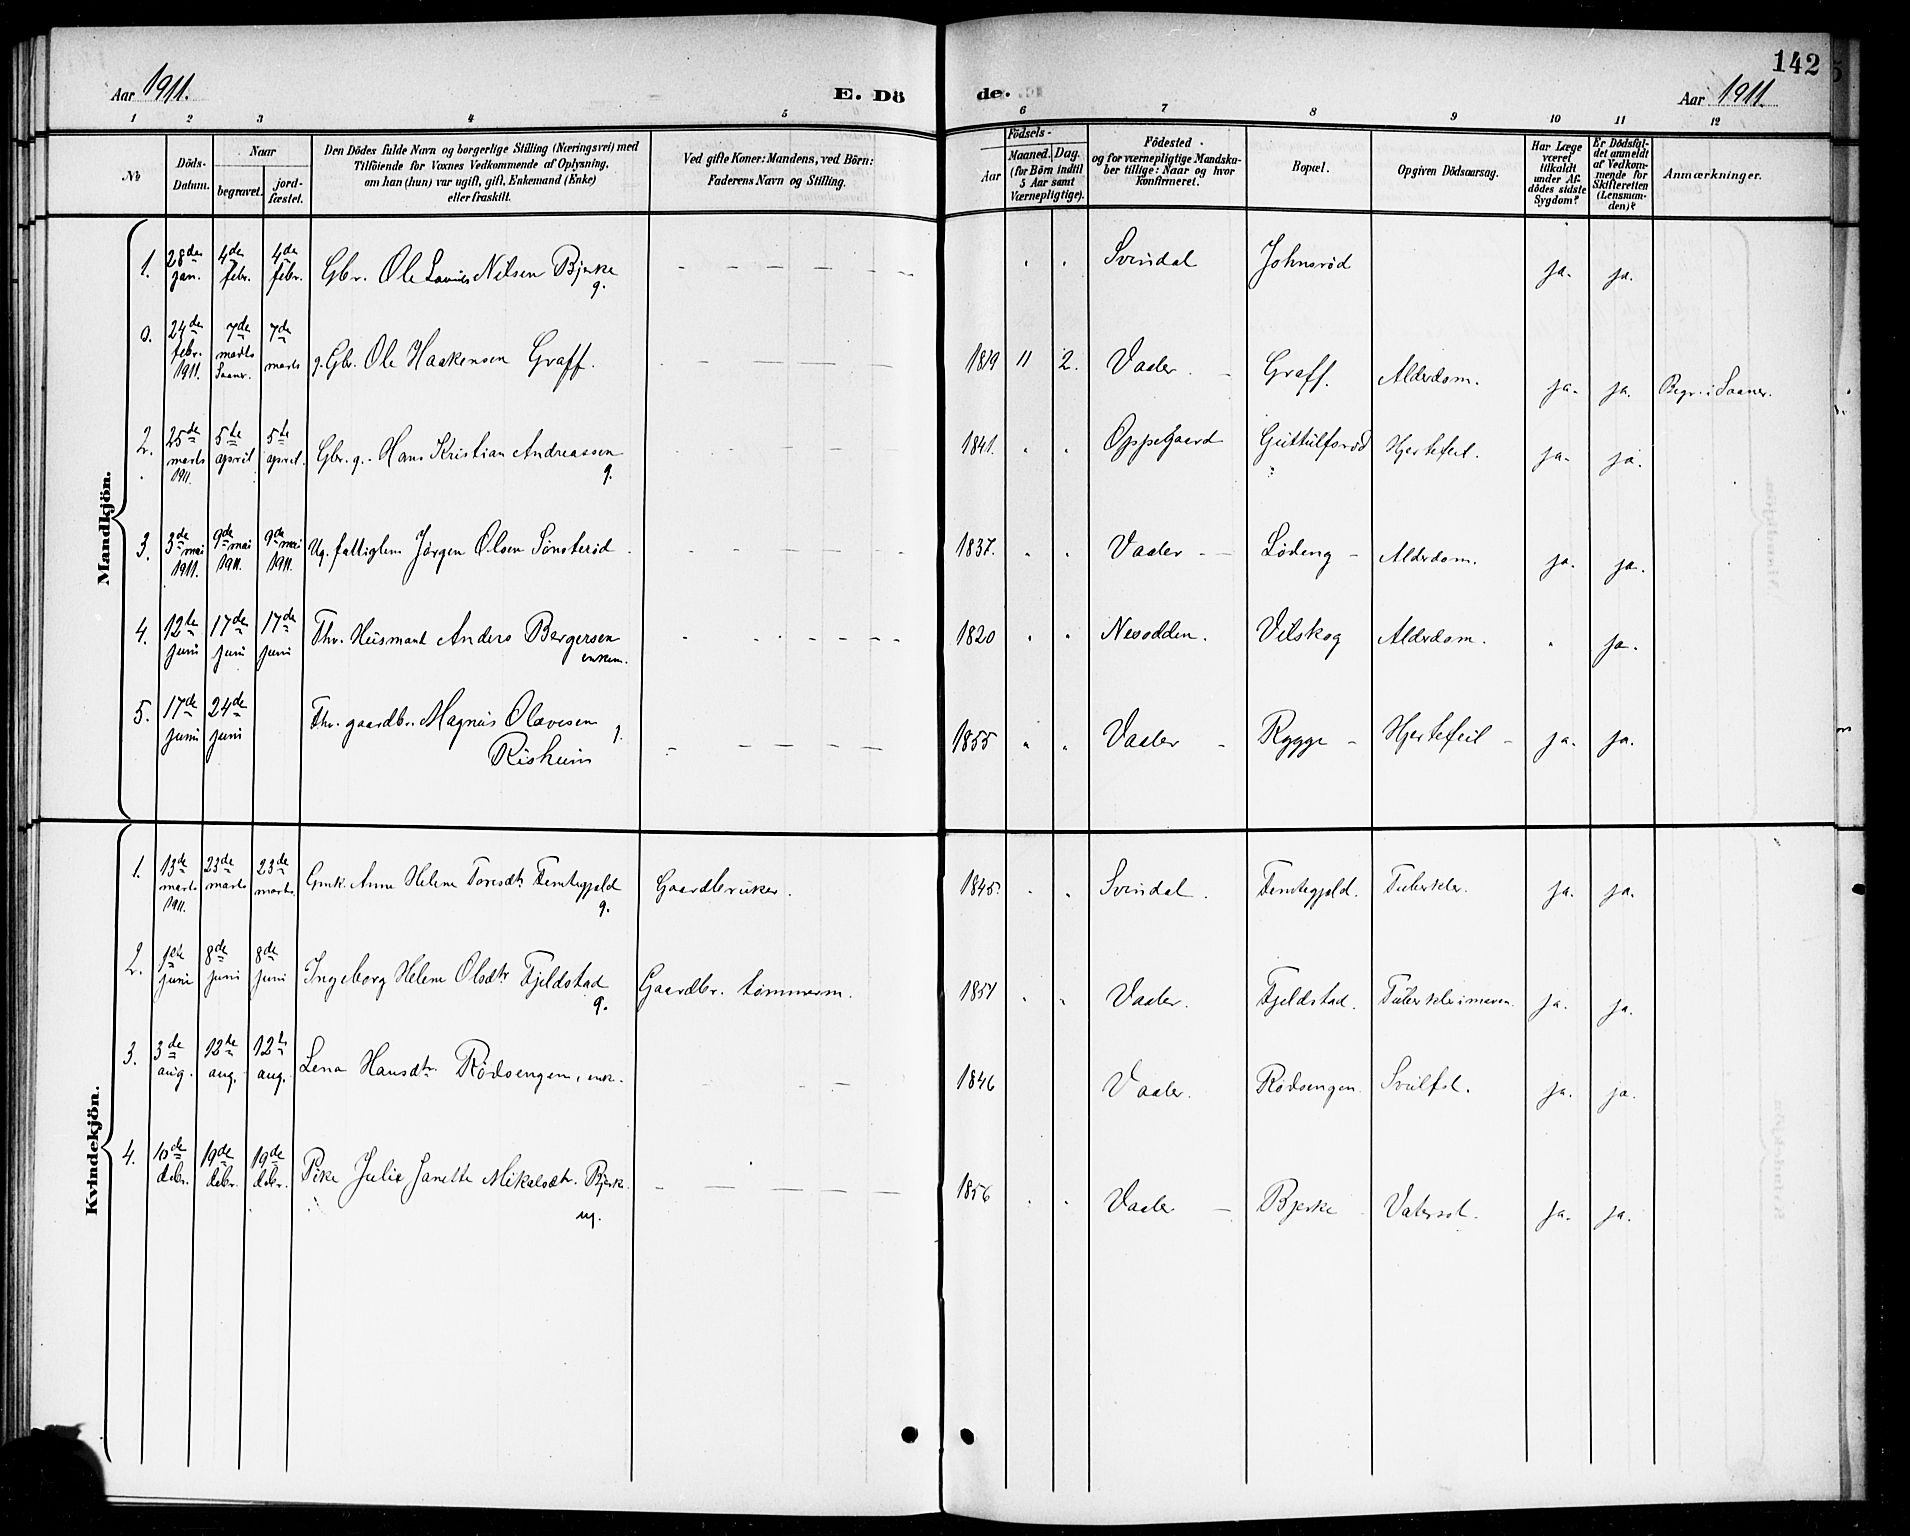 142
Aar 1911. E. Dö de. Aar 1911.
1 2 3 4 5 6 7 8 9 10 11 12
No
Döds-Datum.
Naar
begravet.
jord-fæstet.
Den Dödes fulde Navn og borgerlige Stilling (Næringsvei) med
Tilföiende for Voxnes Vedkommende af Oplysning,
om han (hun) var ugift, gift, Enkemand (Enke)
eller fraskilt.
Ved gifte Koner: Mandens, ved Börn:
Faderens Navn og Stilling.
Födsels-
Aar
Maaned. Dag.
(for Børn indtil
5 Aar samt
Værnepligtige).
Födested
og for værnepligtige Mandska-
ber tillige: Naar og hvor
Konfirmeret.
Bopæl.
Opgiven Dödsaarsag.
Har Læge
været
tilkaldt
under Af-
dödes sidste
Sygdom?
Er Dödsfal-
det anmeldt
af Vedkom-
mende for
Skifteretten
(Lensman-
den)?
Anmærkninger.
Mandkjön.
1. 28de jan. 4de febr. 4de febr. Gbr. Ole Lauris Nilsen Bjerke g. Svindal Johnsrød ja. ja.
0. 24de febr. 1911. 7de marts Saaner. 7de marts g. Gbr. Ole Haakensen Graff. 1819 11 2. Vaaler. Graff. Alderdom. ja. ja. Begr. i Saaner.
2. 25de marts 1911. 5te april. 5te april. Gbr. g. Hans Kristian Andreassen g. 1841. Oppegaard Guttulfsrød Hjertefeil. ja. ja.
3. 3de mai 1911. 9de mai 1911. 9de mai 1911. Ug. fattiglem Jørgen Olsen Sønsterød. 1837. Vaaler Lødeng Alderdom. ja. ja.
4. 12te juni 17de juni 17de juni Fhv. Husmand Anders Bergersen enkem. 1820 Nesodden. Vilskog Alderdom. ja.
5. 17de juni 24de juni Fhv. gaardbr. Magnus Olavesen g.
Risheim 1855 Vaaler Rygge Hjertefeil ja. ja.
Kvindekjön.
1. 13de marts 1911. 23de marts 23de marts Gmk. Anne Helene Toresdtr Femtegjeld g. Gaardbruker. 1845. Svindal. Femtegjeld. Tuberkler. ja. ja.
2. 1ste juni 8de juni 8de juni Ingeborg Helene Olsdtr Fjeldstad g. Gaardbr. tømmerm. 1851 Vaaler. Fjeldstad. Tuberkler i maven. ja. ja.
3. 3de aug. 12te aug. 12te aug. Lena Hansdtr. Rødsengen, enk. 1846 Vaaler. Rødsengen. Svulst. ja. ja.
4. 10de debr. 19de debr. 19de debr. Pike Julie Janette Mikalsdtr. Bjerke ug. 1856 Vaaler Bjerke Vatersot. ja. ja.